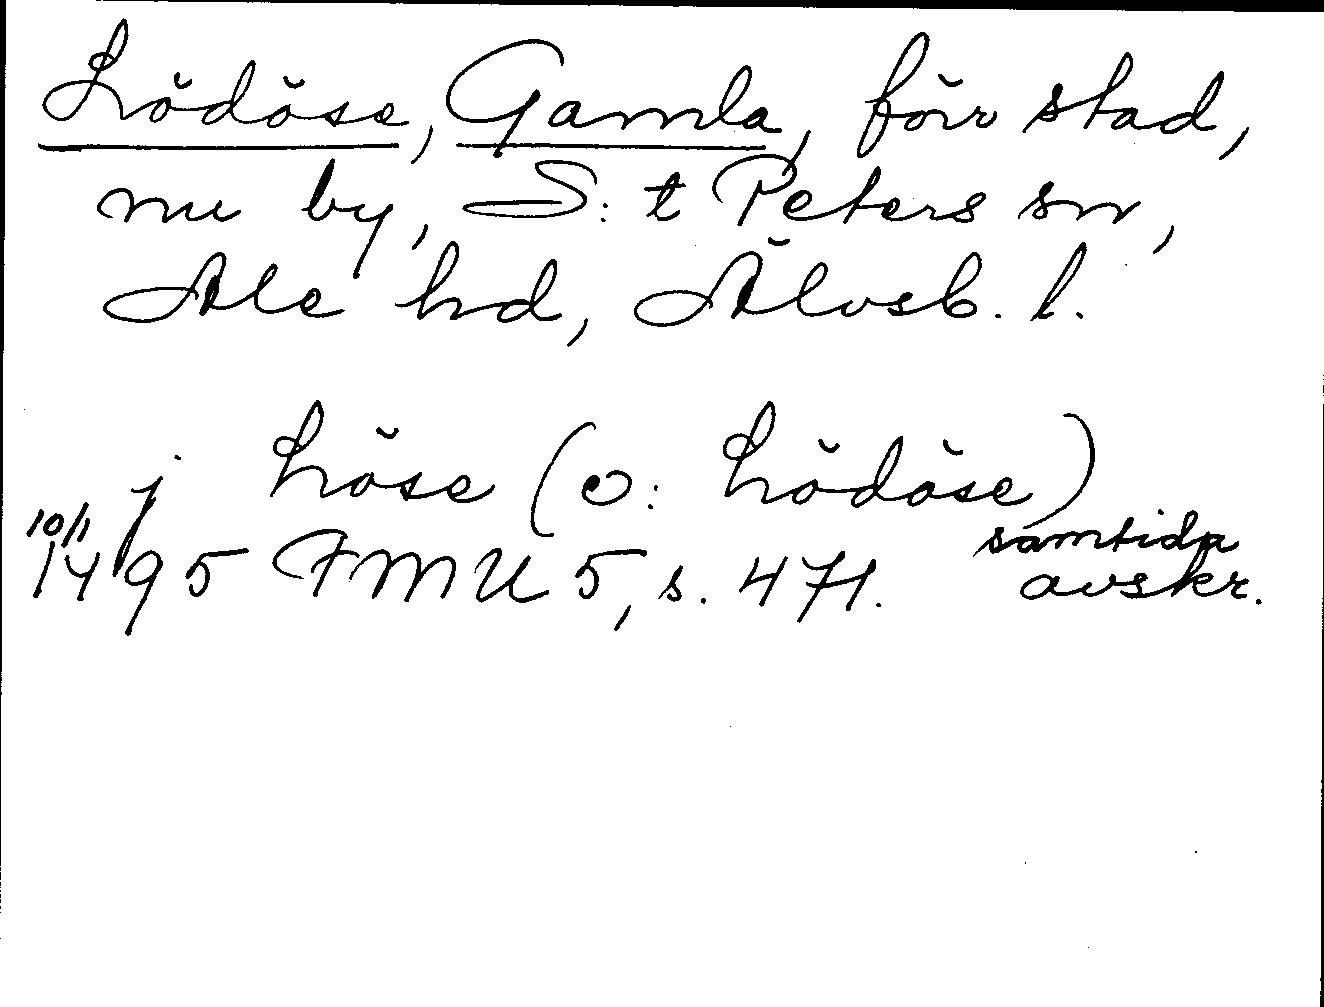 Lödöse, Gamla, förr stad,
nu by, S:t Peters sn,
Ale hd, Älvsb. l.
j Löse (o: Lödöse)
10/1 1495 FMU 5, s. 471. samtida
avskr.